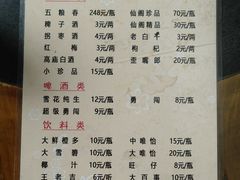 五粮春 248元/瓶 仙阁珍品 70元/瓶
稗子酒 5元/两 仙阁精品 30元/瓶
拐枣酒 5元/两 老白干 3元/两
红梅 3元/两 枸杞 2元/两
高庙白酒 4元/两 歪嘴郎 20元/瓶
小珍品 15元/瓶
啤酒类
雪花纯生 12元/瓶 勇闯 8元/瓶
超级勇闯 9元/瓶
饮料类
大鲜橙多 10元/瓶 中唯怡 10元/瓶
大雪碧 10元/瓶 大唯怡 20元/瓶
椰汁 10元/瓶 旺仔 8元/瓶
王老吉 6元/瓶 大百事 10元/瓶